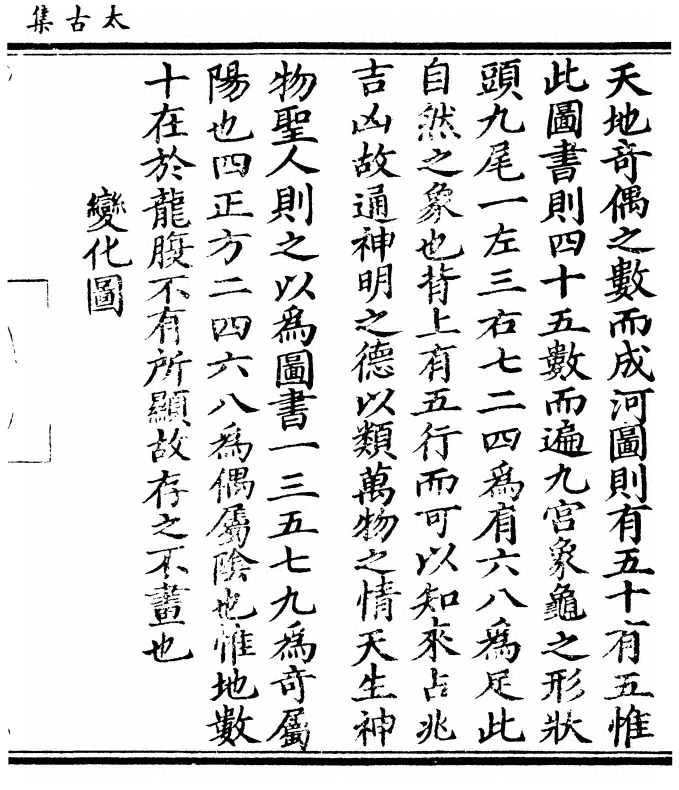 太古集
天地奇偶之數而成河圖則有五十有五惟
此圖書則四十五數而遍九宮象龜之形狀
頭九尾一左三右七二四為肩六八為足此
自然之象也背上有五行而可以知來占兆
吉凶故通神明之德以類萬物之情天生神
物聖人則之以為圖書一三五七九為奇屬
陽也四正方二四六八為偶屬陰也惟地數
十在於龍腹不有所顯故存之不畫也
變化圖